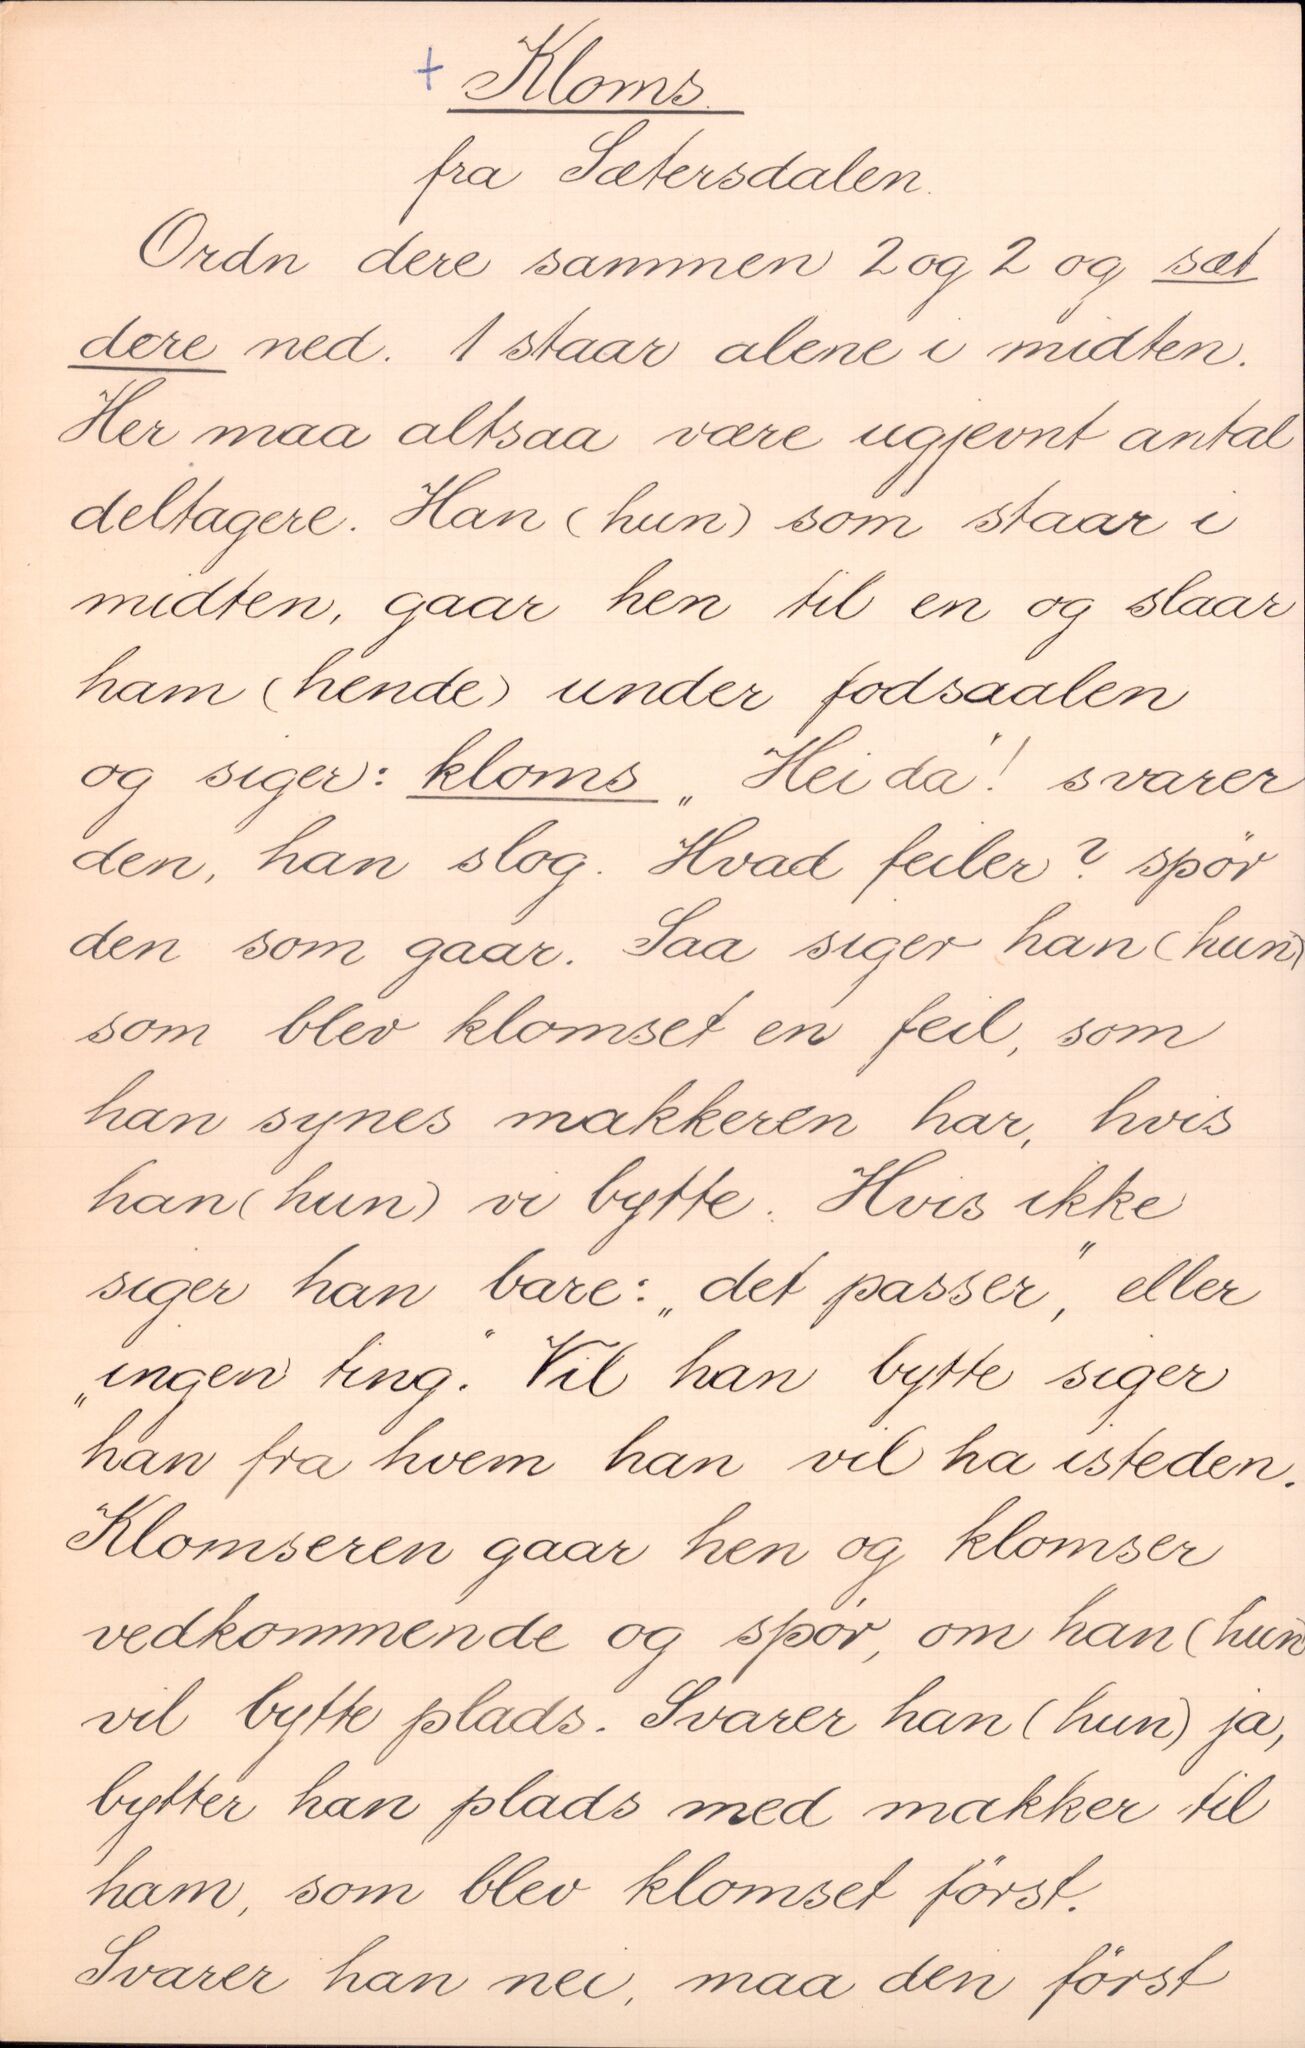 + Kloms.
fra Sætersdalen.
Ordn dere sammen 2 og 2 og sæt
dere ned. 1 staar alene i midten.
Her maa altsaa være ugjevnt antal
deltagere. Han (hun) som staar i
midten, gaar hen til en og slaar
ham (hende) under fodsaalen
og siger: kloms „Hei da"! svarer
den, han slog. Hvad feiler? spör
den som gaar. Saa siger han (hun)
som blev klomset en feil, som
han synes makkeren har, hvis
han (hun) vi bytte. Hvis ikke
siger han bare: „det passer", eller
„ingen ting". Vil han bytte siger
han fra hvem han vil ha isteden.
Klomseren gaar hen og klomser
vedkommende og spör, om han (hun
vil bytte plads. Svarer han (hun) ja,
bytter han plads med makker til
ham, som blev klomset först.
Svarer han nei, maa den först